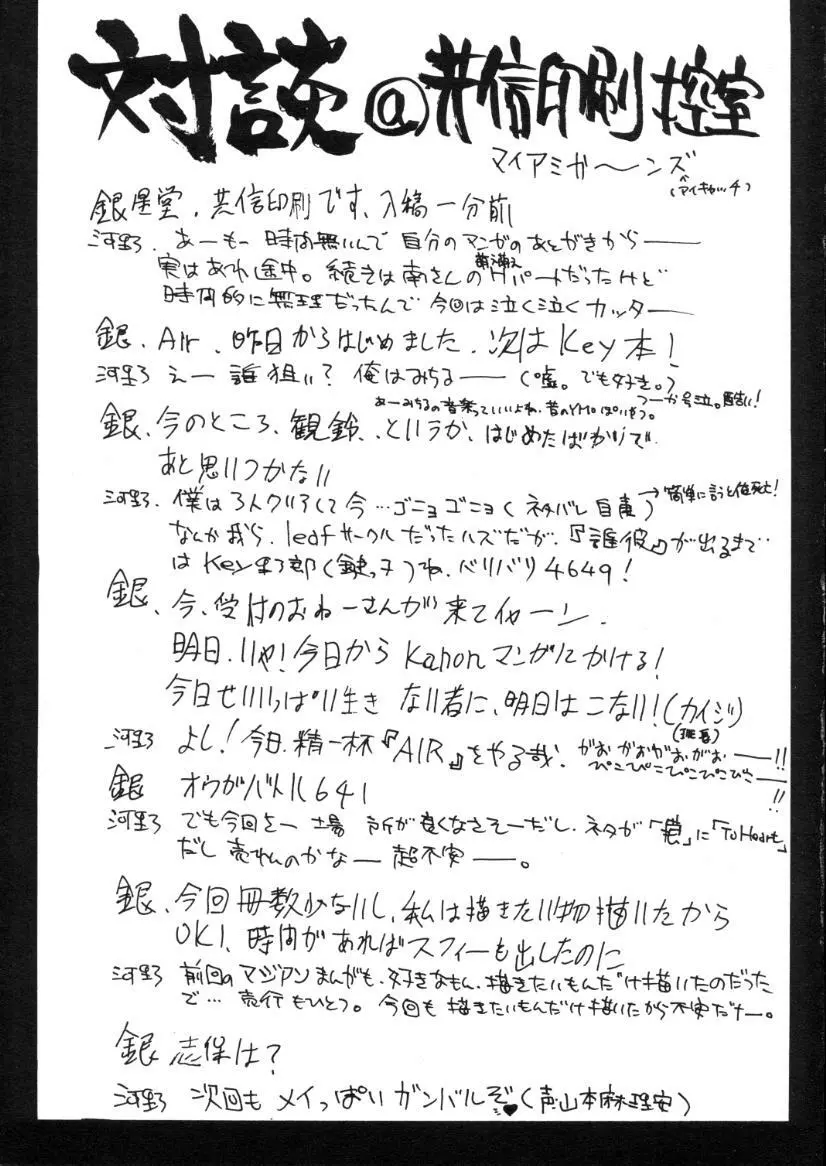 対談@共信印刷控室
マイアミガ〜ンズ
(アイキャッチ)
銀星堂、共信印刷です、入稿一分前
河野、あーもー時間無いんで自分のマンガのあとがきから——
実はあれ途中。続きは南さんの萌萌えHパートだったけど
時間的に無理だったんで今回は泣く泣くカッター
銀、Air、昨日からはじめました、次はKey本!
河野 えー誰狙い?俺はみちる——(嘘。でも好き。)
つーか号泣。酷い!
あーみちるの音楽っていいよね、昔のYMOっぽい
銀、今のところ、観鈴、というか、はじめたばかりで
あと思いつかない
河野、僕は3人クリアして今…ゴニョゴニョ(ネタバレ自粛)→簡単に言うと俺死亡!
なんか我ら、leafサークルだったハズだが、『誰彼』が出るまで
はKey野郎(鍵っ子)ね、バリバリ4649!
銀、今、受付のおねーさんが来てイヤーン、
明日、いや!今日からKanonマンガにかける!
今日せいいっぱい生きない者に、明日はこない!(カイジ)
(班長)
河野 よし!今日、精一杯『AIR』をやる哉、がおがおがおがお——!!
ぴこぴこぴこぴこぴこ——!!
銀 オウガバトル64!
河野 でも今回さー 場所が良くなさそーだし、ネタが「」に「To Heart」
だし売れんのかなー 超不安——。
銀、今回冊数少ないし、私は描きたい物描いたから
OK!、時間があればスフィーも出したのに
河野 前回のマジアンまんがも、好きなもん、描きたいもんだけ描いたのだった
で…売行もひとつ。今回も描きたいもんだけ描いたから不安だナー。
銀 志保は?
河野 次回もメイっぱいガンバルぞ♥(声山本麻理安)